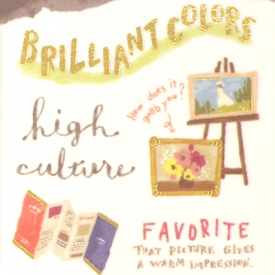 BRILLIANT COLORS
How does it
grab you?
high
culture
FAVORITE
THAT PICTURE GIVES
A WARM IMPRESSION.